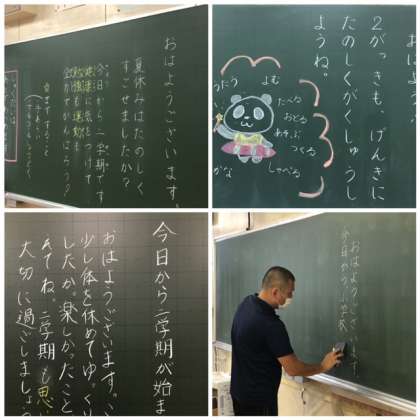 おはようございます。
夏休みはたのしく
すごせましたか？
今日から二学期です
健康に気をつけて、
勉強も運動も
全力でがんばろう！
おはよう
２がっきも、げんきに
たのしくがくしゅうし
ようね。
うたう
よむ
たべる
おどる
あそぶ
つくる
しゃべる
今日から二学期が始ま
おはようございます。
少し体を休めてゆっくり
したか。楽しかったこと
えてね。二学期も思
大切に過ごしましょ
おはようございます。
今日から二学期